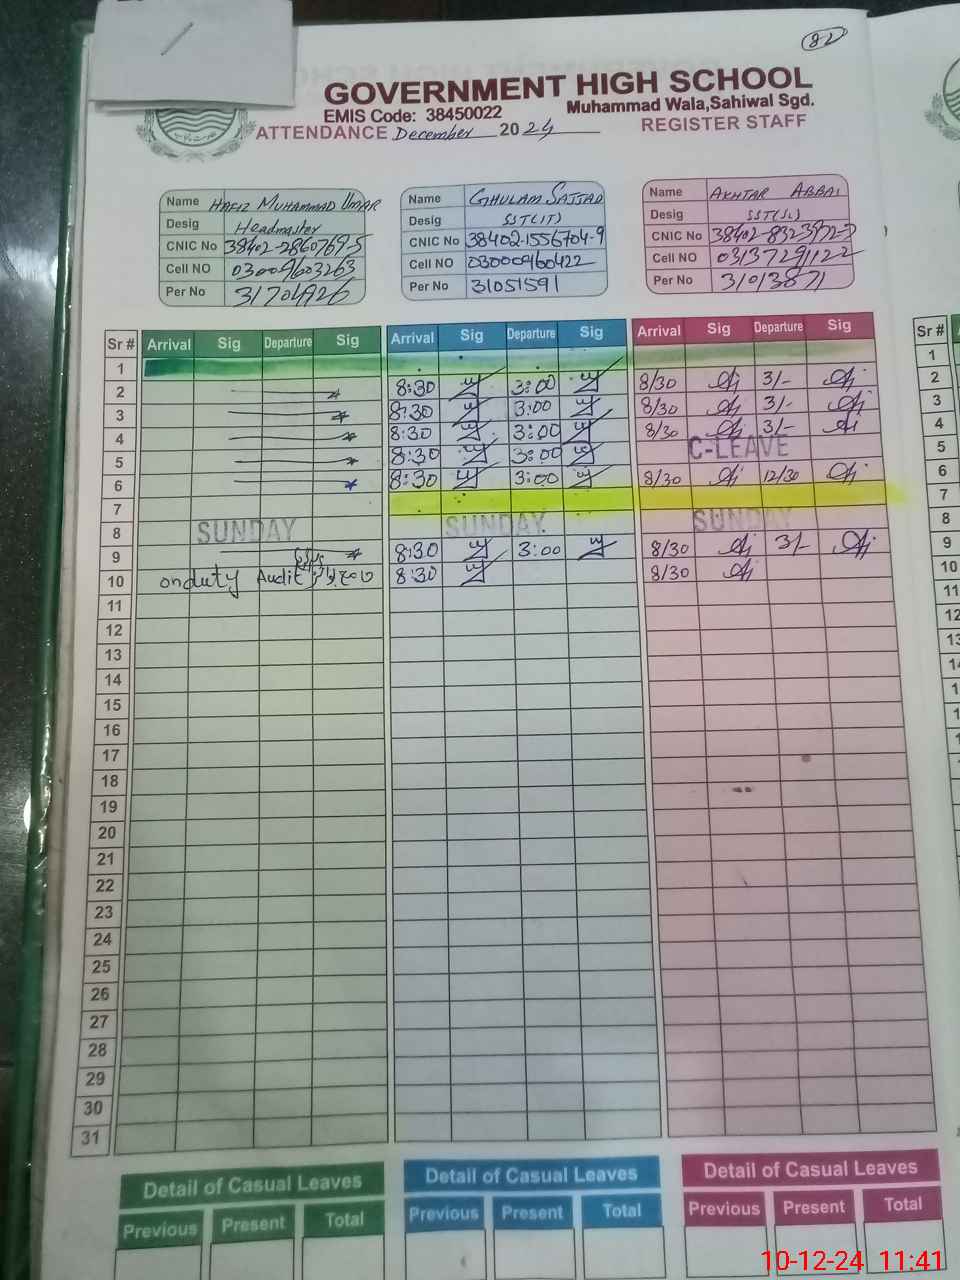 82
GOVERNMENT HIGH SCHOOL
EMIS Code: 38450022 Muhammad Wala,Sahiwal Sgd.
ATTENDANCE December 2024 REGISTER STAFF
Name HAFIZ MUHAMMAD UMAR
Desig Headmaster
CNIC No 38402-2860769-5
Cell NO 03009603263
Per No 31704926
Name GHULAM SAJJAD
Desig SST(IT)
CNIC No 38402-1556704-9
Cell NO 03000960422
Per No 31051591
Name AKHTAR ABBAS
Desig
CNIC No
Cell NO 03137291122
Per No 31013871
Sr # Arrival Sig Departure Sig Arrival Sig Departure Sig Arrival Sig Departure Sig Sr #
1 1
2 8:30 3:00 8/30 3/- 2
3 8:30 3:00 8/30 3/- 3
4 8:30 3:00 8/30 3/- 4
5 8:30 3:00 C-LEAVE 5
6 8:30 3:00 8/30 12/30 6
7 7
8 SUNDAY SUNDAY SUNDAY 8
9 8:30 3:00 8/30 3/- 9
10 onduty Audit 8:30 8/30 10
11 11
12 12
13 13
14
15
16
17
18
19
20
21
22
23
24
25
26
27
28
29
30
31
Detail of Casual Leaves Detail of Casual Leaves Detail of Casual Leaves
Previous Present Total Previous Present Total Previous Present Total
10-12-24 11:41